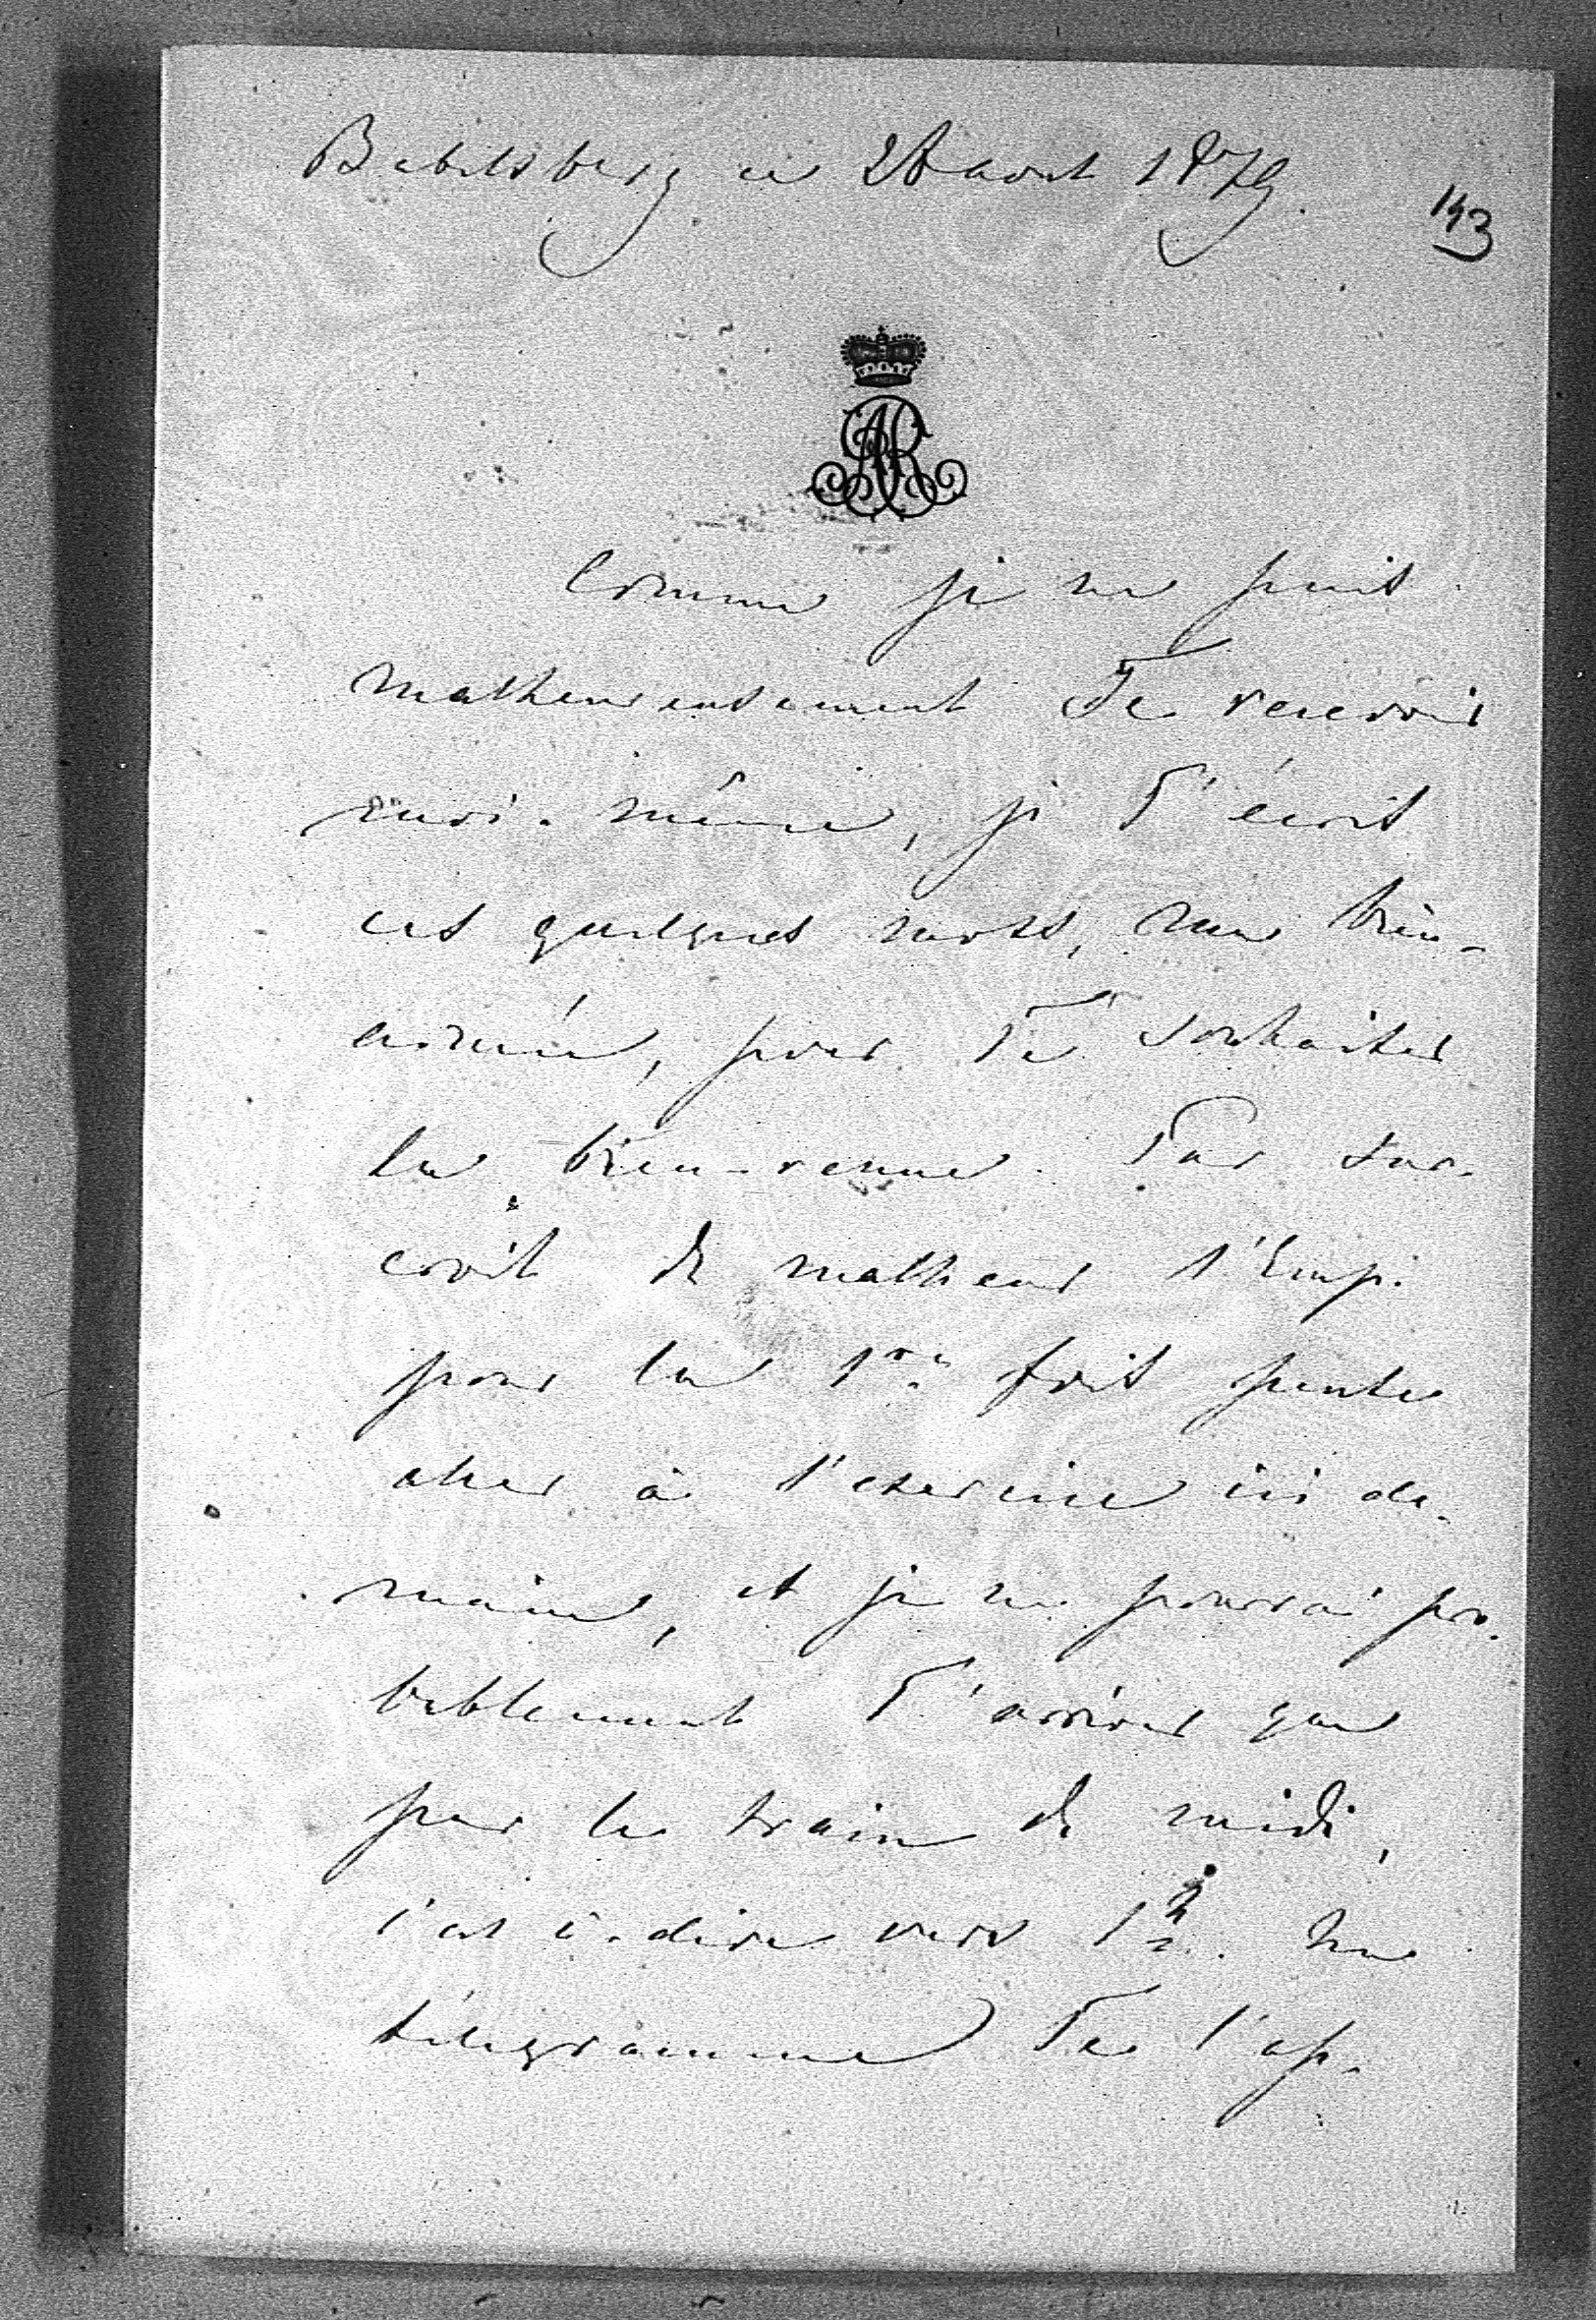 Babelsberg ce 28 aout 1879.
143
AR
Comme je ne puis
malheureusement Te recevoir
moi-même, je T'écris
ces quelques mots, ma bien-
aimée, pour Te souhaiter
la bien-venue. Par sur-
croit de malheur l'Emp.
pour la 1re fois
aller à l'exercice ici de-
main, et je ne pourrai pro-
bablement T'arriver que
par le train de midi,
c'est à-dire vers 1h. Un
télégramme Te l'ap-